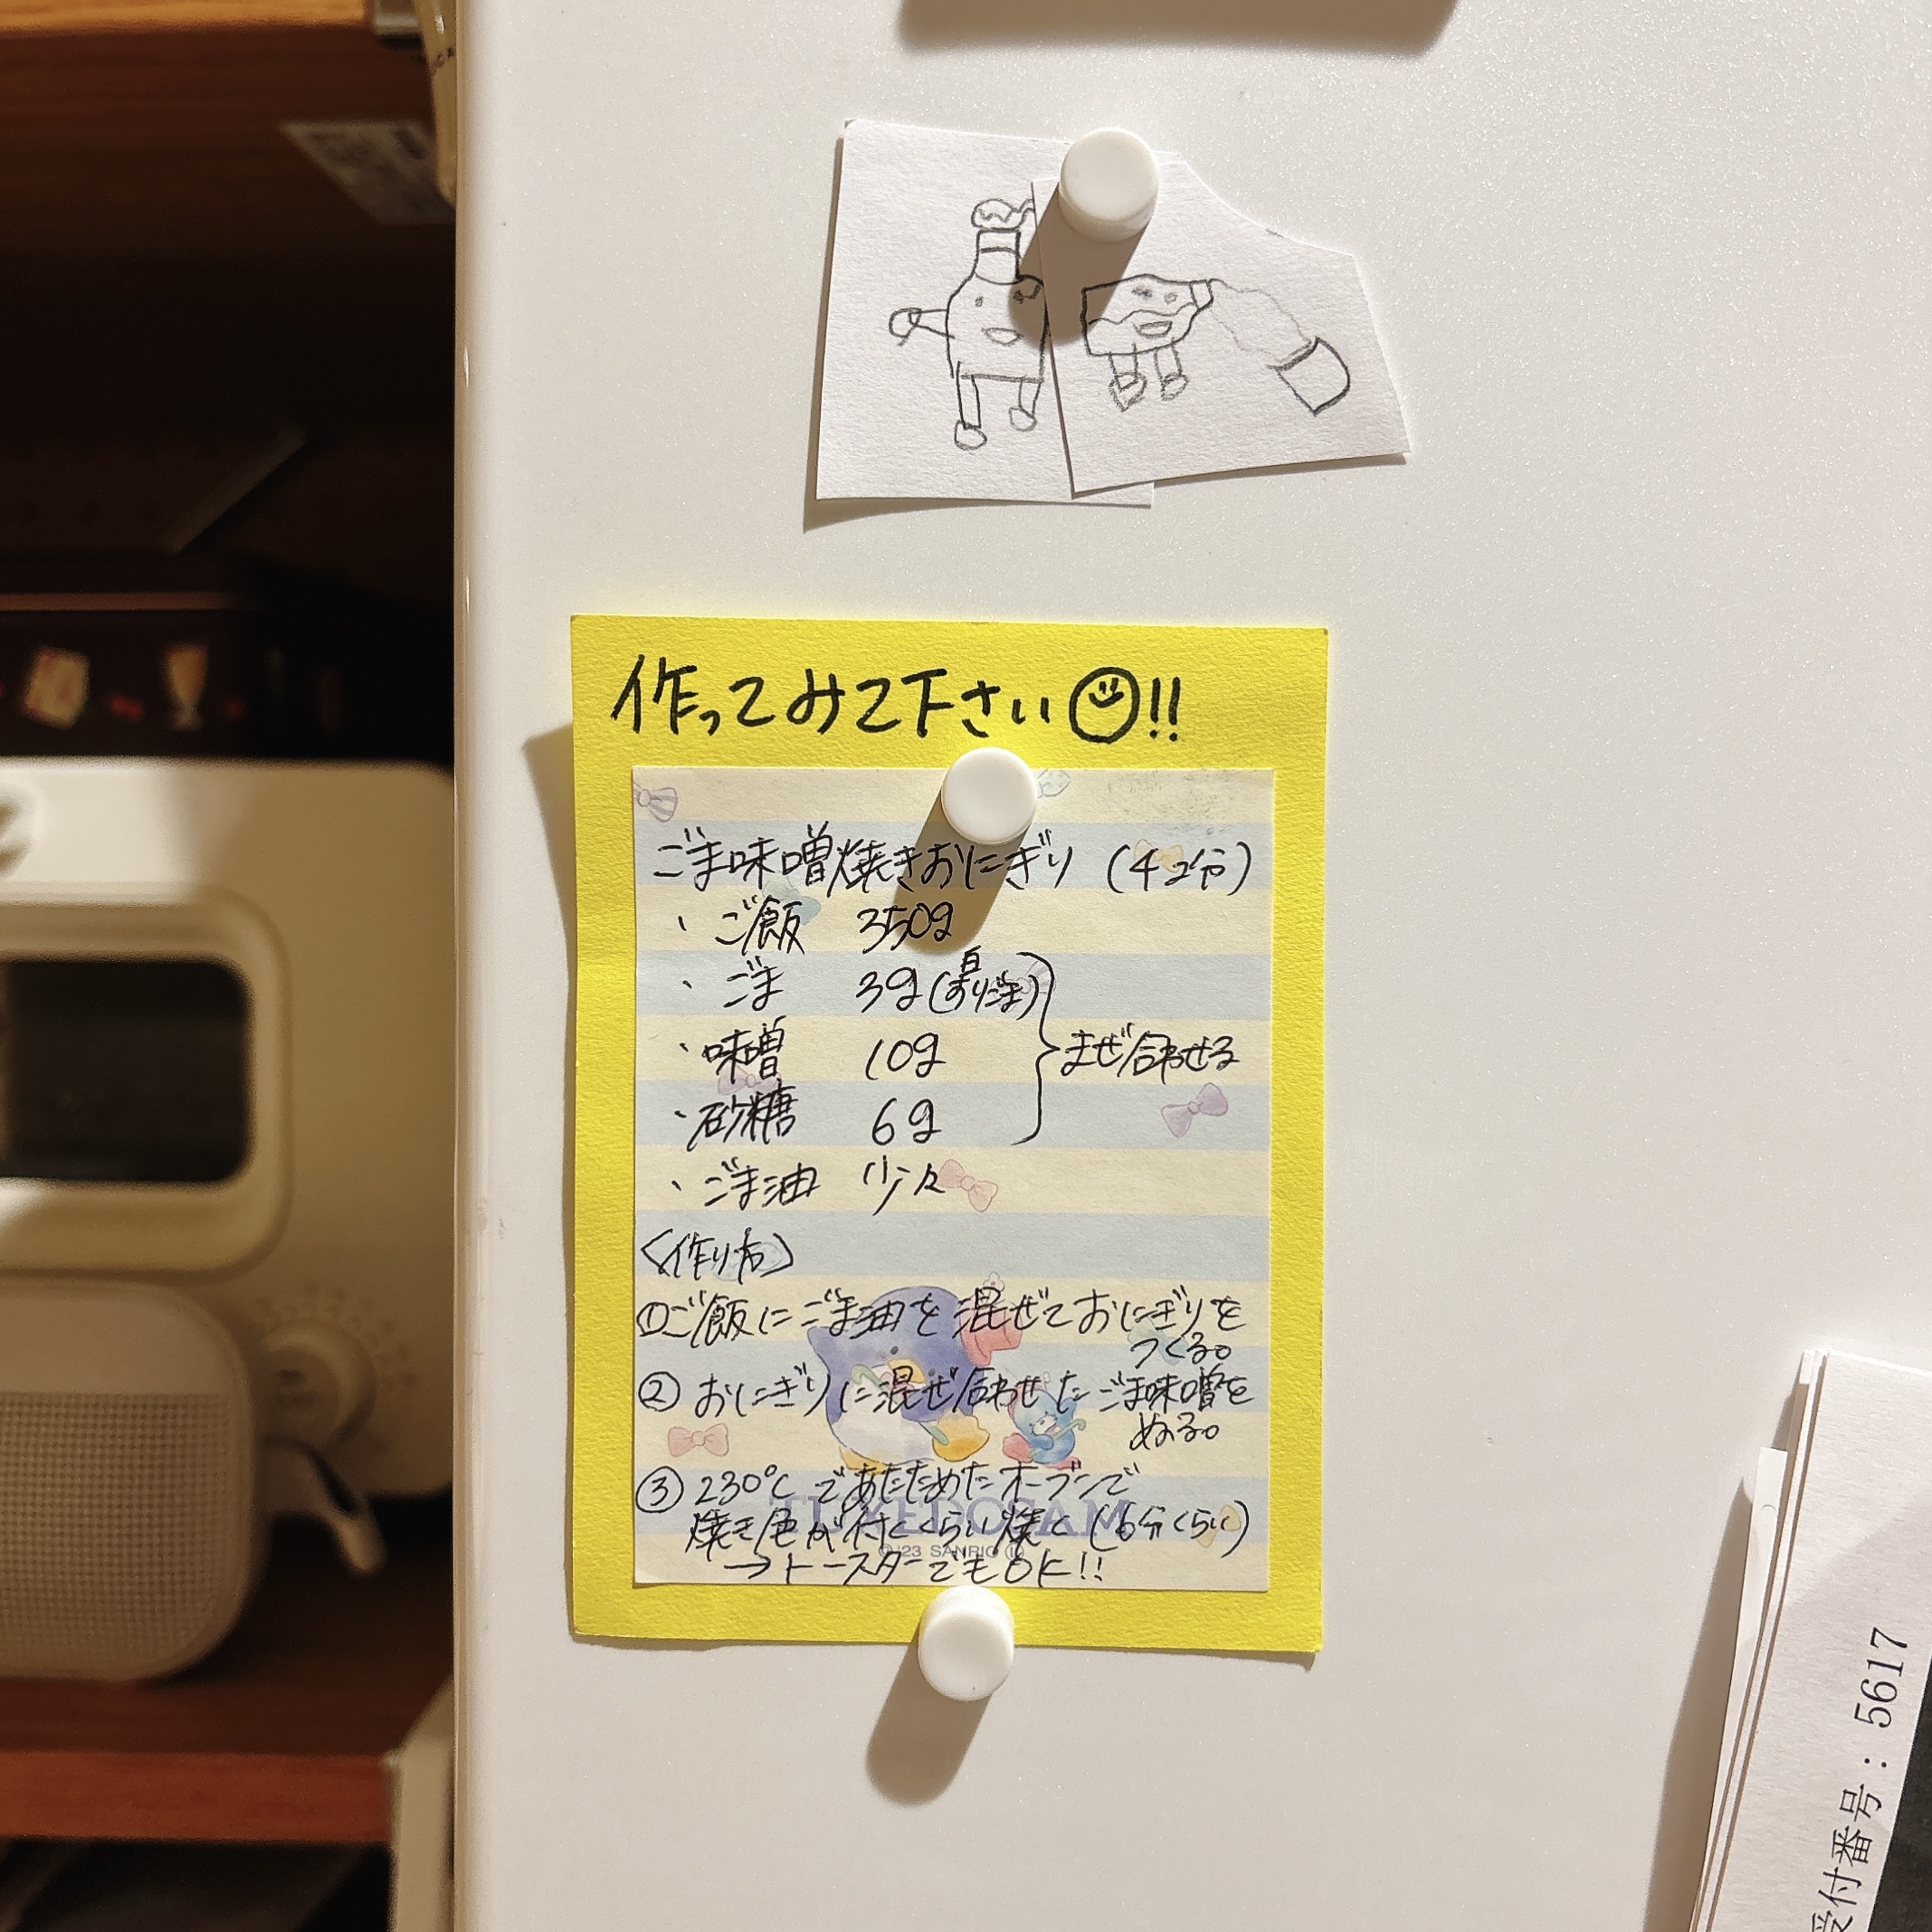 作ってみて下さい!!
ごま味噌焼きおにぎり (4コ分)
・ご飯 350g
・ごま 3g(白すりごま)
・味噌 10g
・砂糖 6g
まぜ合わせる
・ごま油 少々
〈作り方〉
①ご飯にごま油を混ぜておにぎりを
つくる。
②おにぎりに混ぜ合わせたごま味噌を
ぬる。
③230℃であたためたオーブンで
焼き色が付くくらい焼く(6分くらい)
→トースターでもOK!!
TUXEDOSAM
'23 SANRIO
受付番号:5617